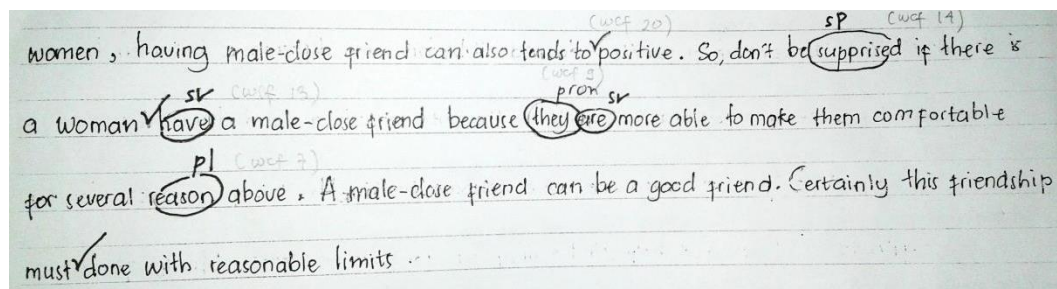 (wcf 20) sp (wcf 14)
women, having male-close friend can also tends to positive. So, don't be supprised if there is
sv (wcf 13) (wcf 9) pron sv
a woman have a male-close friend because they are more able to make them comfortable
pl (wcf 7)
for several reason above. A male-close friend can be a good friend. Certainly this friendship
must done with reasonable limits